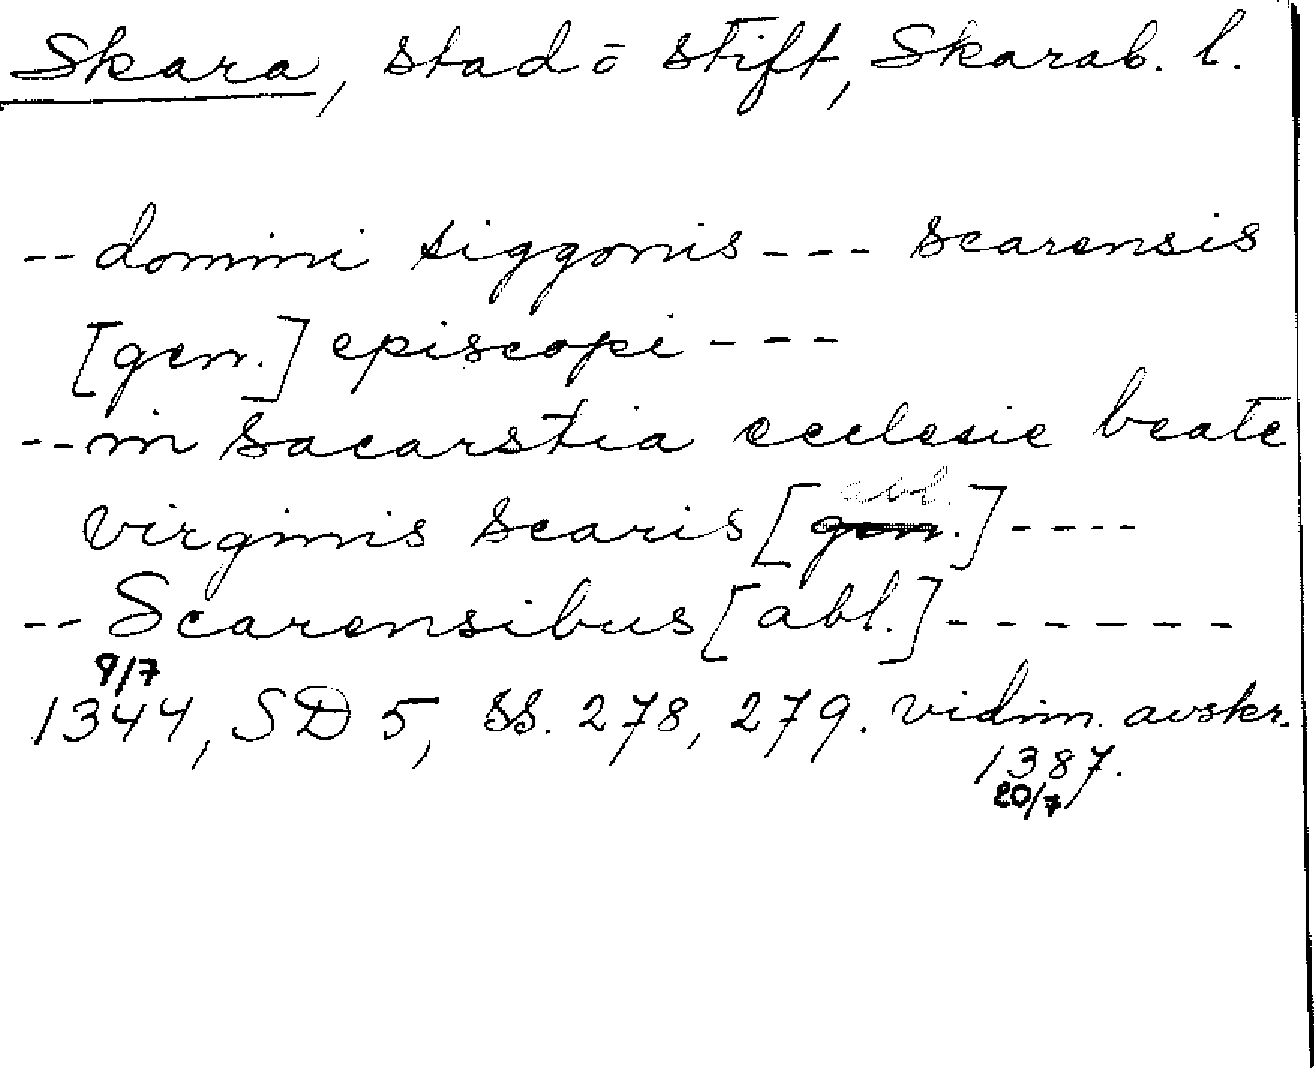 Skara, stad o stift, Skarab. l.
-- domini siggonis --- scarensis
[gen.] episcopi ---
-- in sacarstia ecclesie beate
virginis scaris [abl.] ----
-- Scarensibus [abl.] -------
9/7
1344, SD 5, ss. 278, 279. vidim. avskr.
1387.
20/7